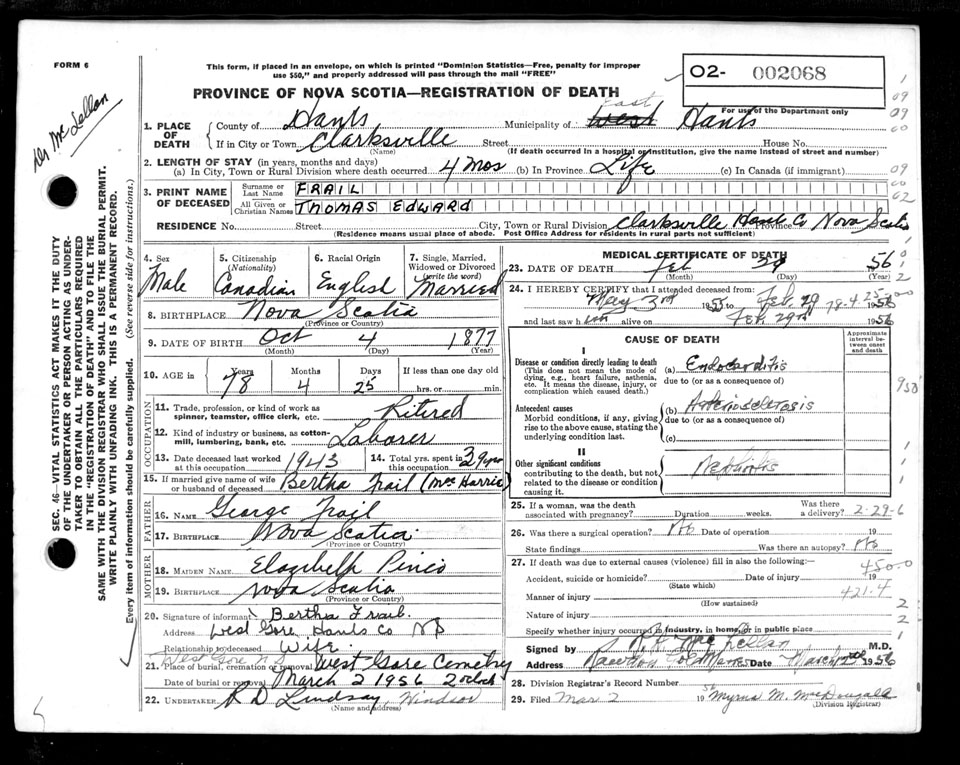 FORM 6
This form, if placed in an envelope, on which is printed "Dominion Statistics—Free, penalty for improper
use $50," and properly addressed will pass through the mail "FREE"
O2- 002068
For use of the Department only
PROVINCE OF NOVA SCOTIA—REGISTRATION OF DEATH
Dr McLellan
1. PLACE OF DEATH
County of Hants Municipality of West East Hants
If in City or Town Clarksville Street House No.
(Name) (If death occurred in a hospital or institution, give the name instead of street and number)
2. LENGTH OF STAY (in years, months and days)
(a) In City, Town or Rural Division where death occurred 4 Mos (b) In Province Life (c) In Canada (if immigrant)
3. PRINT NAME OF DECEASED
Surname or Last Name FRAIL
All Given or Christian Names THOMAS EDWARD
RESIDENCE No. Street City, Town or Rural Division Clarksville Hants Co Province Nova Scotia
(Residence means usual place of abode. Post Office Address for residents in rural parts not sufficient)
SEC. 46—VITAL STATISTICS ACT MAKES IT THE DUTY
OF THE UNDERTAKER OR PERSON ACTING AS UNDER-
TAKER TO OBTAIN ALL THE PARTICULARS REQUIRED
IN THE "REGISTRATION OF DEATH" AND TO FILE THE
SAME WITH THE DIVISION REGISTRAR WHO SHALL ISSUE THE BURIAL PERMIT.
WRITE PLAINLY WITH UNFADING INK. THIS IS A PERMANENT RECORD.
Every item of information should be carefully supplied. (See reverse side for instructions.)
4. Sex Male
5. Citizenship (Nationality) Canadian
6. Racial Origin English
7. Single, Married, Widowed or Divorced (write the word) Married
8. BIRTHPLACE Nova Scotia
(Province or Country)
9. DATE OF BIRTH Oct 4 1877
(Month) (Day) (Year)
10. AGE in Years 78 Months 4 Days 25 If less than one day old hrs. or min.
OCCUPATION
11. Trade, profession, or kind of work as spinner, teamster, office clerk, etc. Retired
12. Kind of industry or business, as cotton-mill, lumbering, bank, etc. Laborer
13. Date deceased last worked at this occupation 1943
14. Total yrs. spent in this occupation 39 yrs
15. If married give name of wife or husband of deceased Bertha Frail (Mac Harrie)
FATHER
16. NAME George Frail
17. BIRTHPLACE Nova Scotia
(Province or Country)
MOTHER
18. MAIDEN NAME Elazibelh
19. BIRTHPLACE Nova Scotia
(Province or Country)
20. Signature of informant Bertha Frail.
Address West Gore Hants Co NS
Relationship to deceased Wife
West Gore N.S.
21. Place of burial, cremation or removal West Gore Cemetry
Date of burial or removal March 2 1956
22. UNDERTAKER R D Lindsay, Windsor
(Name and address)
MEDICAL CERTIFICATE OF DEATH
23. DATE OF DEATH Feb 29 1956
(Month) (Day) (Year)
24. I HEREBY CERTIFY that I attended deceased from:
May 3rd 1955 to Feb. 29 1956
78-4-25-00
and last saw him alive on Feb. 29th 1956
CAUSE OF DEATH
Approximate interval between onset and death
I
Disease or condition directly leading to death
(This does not mean the mode of dying, e.g., heart failure, asthenia, etc. It means the disease, injury, or complication which caused death.)
(a) Endocarditis
due to (or as a consequence of)
Antecedent causes
Morbid conditions, if any, giving rise to the above cause, stating the underlying condition last.
(b) Arteriosclerosis
due to (or as a consequence of)
(c)
II
Other significant conditions
contributing to the death, but not related to the disease or condition causing it.
Nephritis
25. If a woman, was the death associated with pregnancy? Duration weeks. Was there a delivery? 2-29-6
26. Was there a surgical operation? No Date of operation 19
State findings Was there an autopsy? No
27. If death was due to external causes (violence) fill in also the following:
450-0
Accident, suicide or homicide? Date of injury 19
(State which)
421-4
Manner of injury
(How sustained)
Nature of injury
Specify whether injury occurred in industry, in home, or in public place
Signed by McLellan M.D.
Address Rawdon Gold Mines Date March 2nd 1956
28. Division Registrar's Record Number
29. Filed Mar 2 1956 Myrna M. McDougall
(Division Registrar)